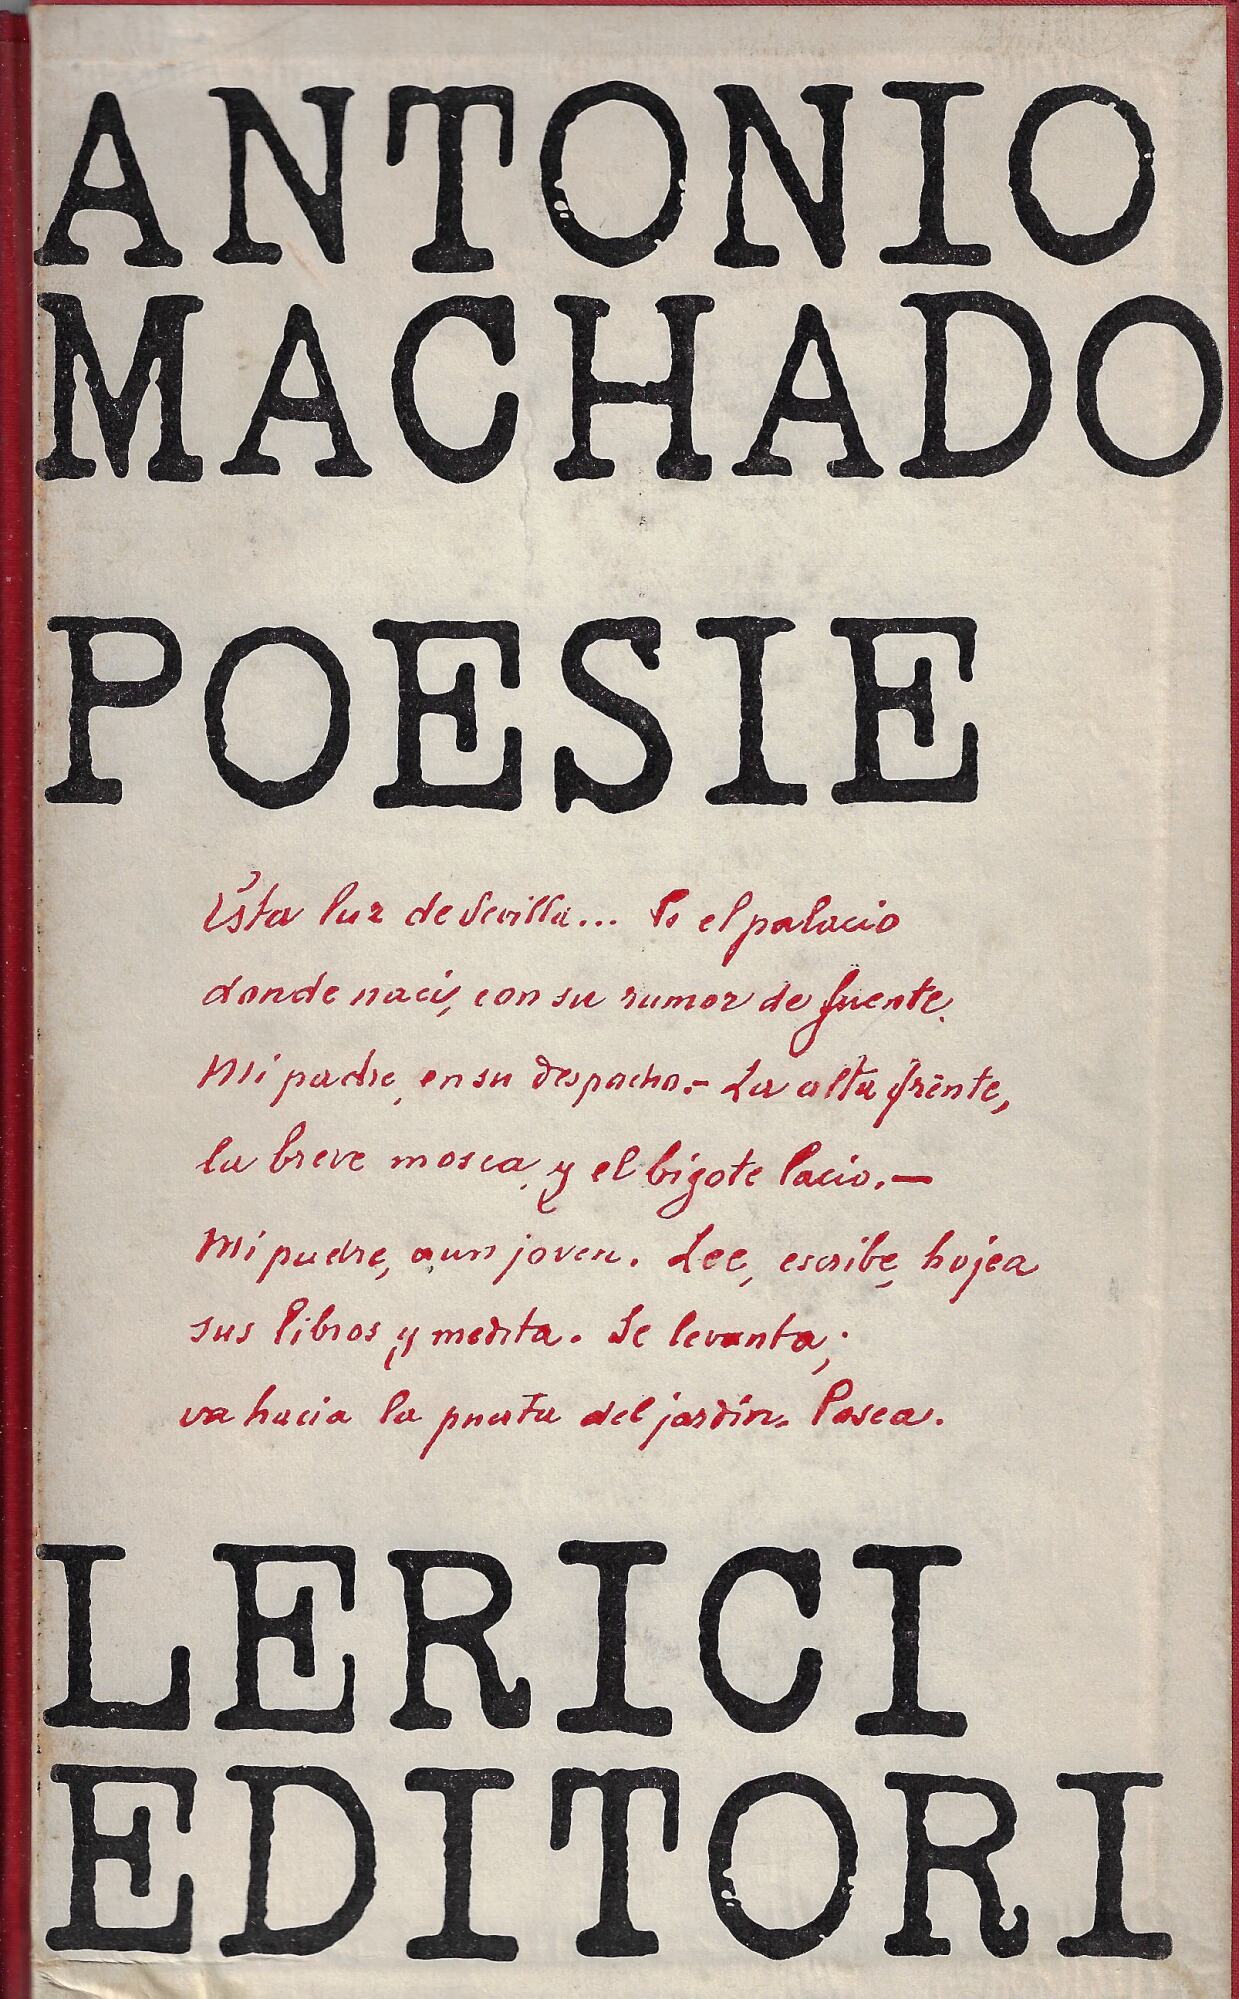 ANTONIO
MACHADO
POESIE
Esta luz de Sevilla... Es el palacio
donde nací, con su rumor de fuente.
Mi padre, en su despacho.- La alta frente,
la breve mosca, y el bigote lacio.—
Mi padre, aun joven. Lee, escribe, hojea
sus libros y medita. Se levanta;
va hacia la puerta del jardín. Pasea.
LERICI
EDITORI